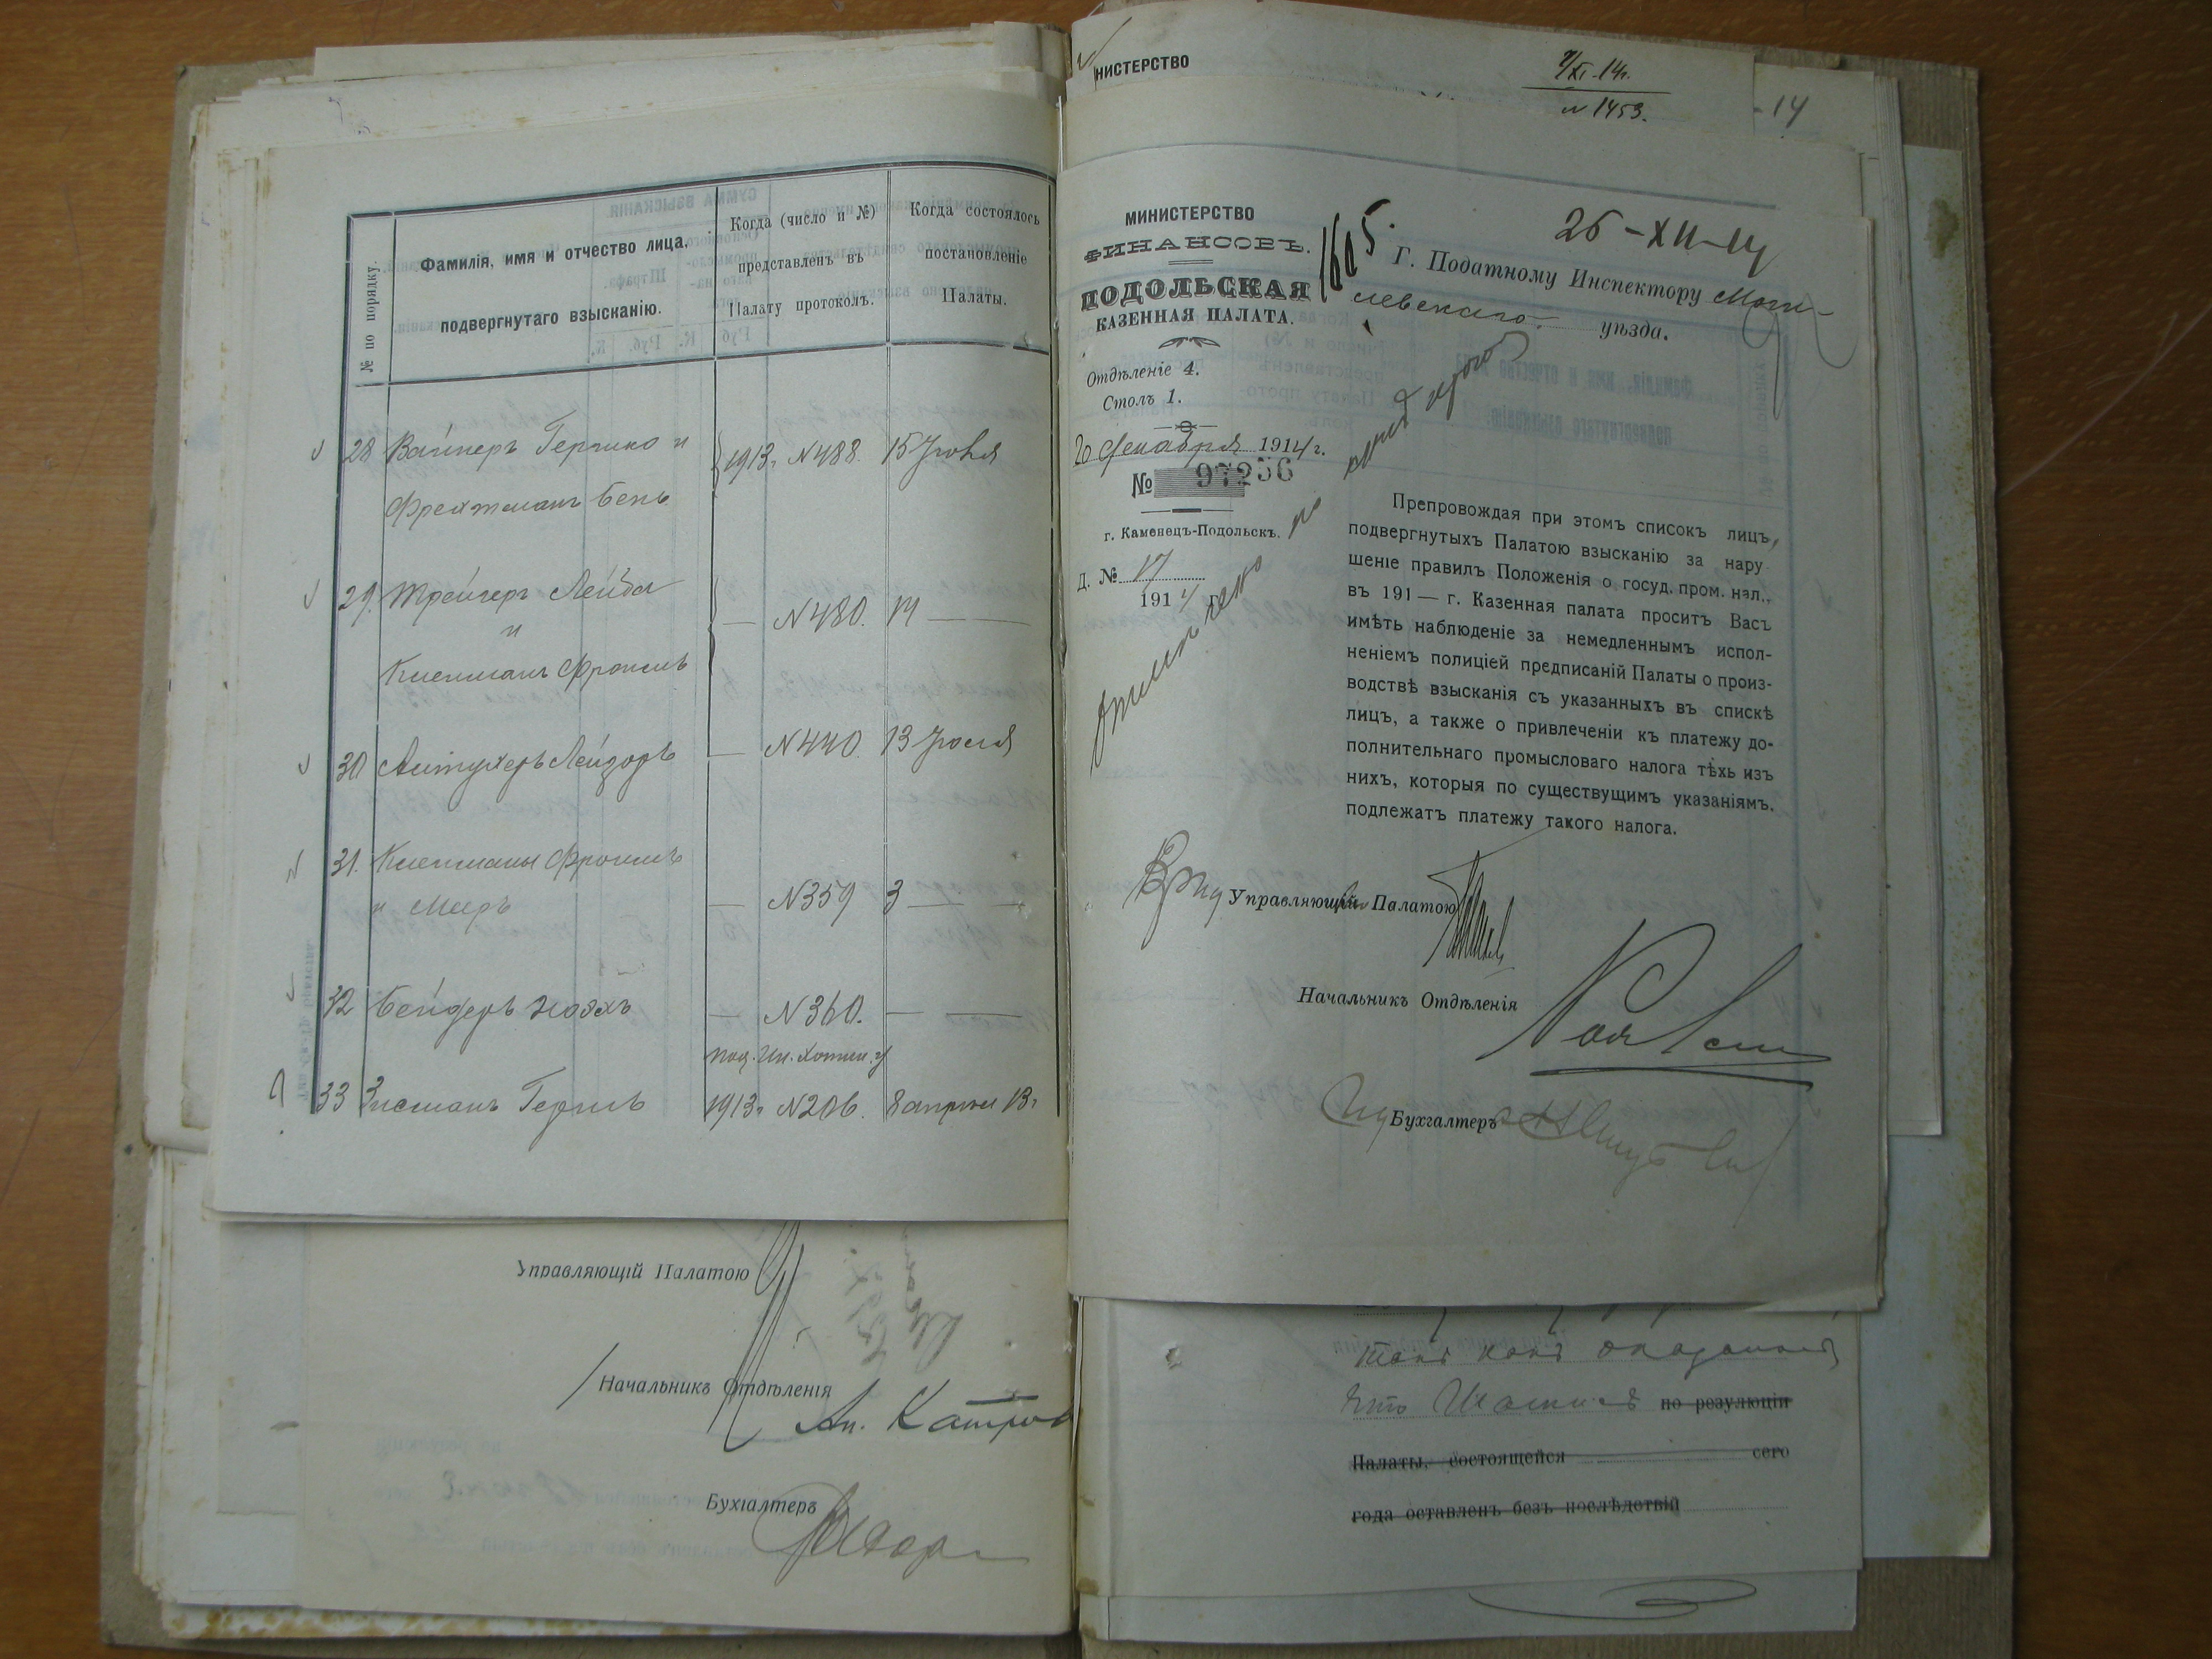 № по порядку.
Фамилія, имя и отчество лица,
подвергнутаго взысканію.
Когда (число и №)
представленъ въ
Палату протоколъ.
Когда состоялось
постановленіе
Палаты.
28 Вайнеръ Гершко и
1913 г. N488. 15 Іюня
Фрейтманъ Бень
29. Трейгеръ Лейба
и
— N480. 14 —
Клейманъ Фроимъ
30 Лейзоръ
— N440. 13
31. Фроимъ
и Мееръ
— N359 3 —
32 Бейдеръ Нозехъ
— N360. — —
под. Ин. Хотин. у
33 Зисманъ Гершъ 1913 г. N206. 8 апрѣля 13 г
Управляющій Палатою
Начальникъ Отдѣленія
Бухгалтеръ
НИСТЕРСТВО
7/XI-14г.
N 1453.
-14
МИНИСТЕРСТВО
ФИНАНСОВЪ.
ПОДОЛЬСКАЯ
КАЗЕННАЯ ПАЛАТА.
Отдѣленіе 4.
Столъ 1.
20 Декабря 1914 г.
№ 97256
г. Каменецъ-Подольскъ.
Д. № 17
1914 г.
1605.
26-XII-14
Г. Податному Инспектору Моги-
левскаго уѣзда.
Препровождая при этомъ списокъ лицъ,
подвергнутыхъ Палатою взысканію за нару
шеніе правилъ Положенія о госуд. пром. нал.,
въ 191— г. Казенная палата проситъ Васъ
имѣть наблюденіе за немедленнымъ испол-
неніемъ полиціей предписаній Палаты о произ-
водствѣ взысканія съ указанныхъ въ спискѣ
лицъ, а также о привлеченіи къ платежу до-
полнительнаго промысловаго налога тѣхъ изъ
нихъ, которыя по существущимъ указаніямъ.
подлежатъ платежу такого налога.
Управляющій Палатою
Начальникъ Отдѣленія
Бухгалтеръ
такъ какъ
что по резулюціи
Палаты, состоящейся сего
года оставленъ безъ послѣдствій